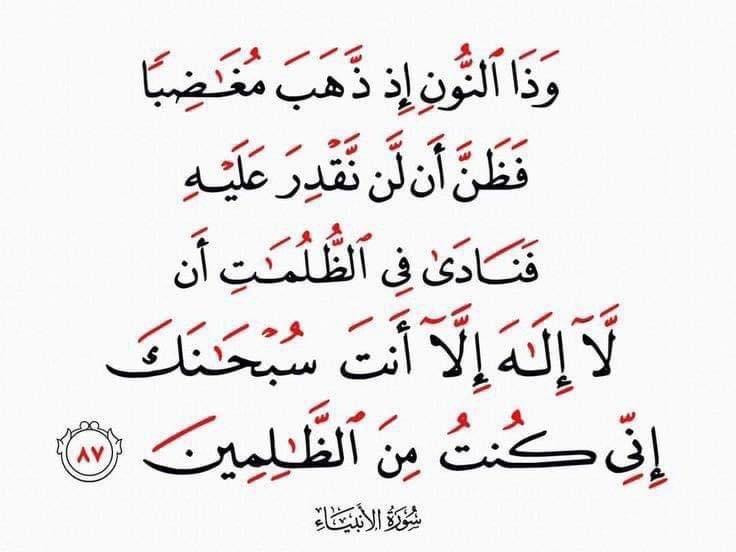 وَذَا ٱلنُّونِ إِذ ذَّهَبَ مُغَـٰضِبًا
فَظَنَّ أَن لَّن نَّقْدِرَ عَلَيْهِ
فَنَادَىٰ فِي ٱلظُّلُمَـٰتِ أَن
لَّآ إِلَـٰهَ إِلَّآ أَنتَ سُبْحَـٰنَكَ
إِنِّي كُنتُ مِنَ ٱلظَّـٰلِمِينَ ٨٧
سُورَةُ الأَنبِيَاءِ